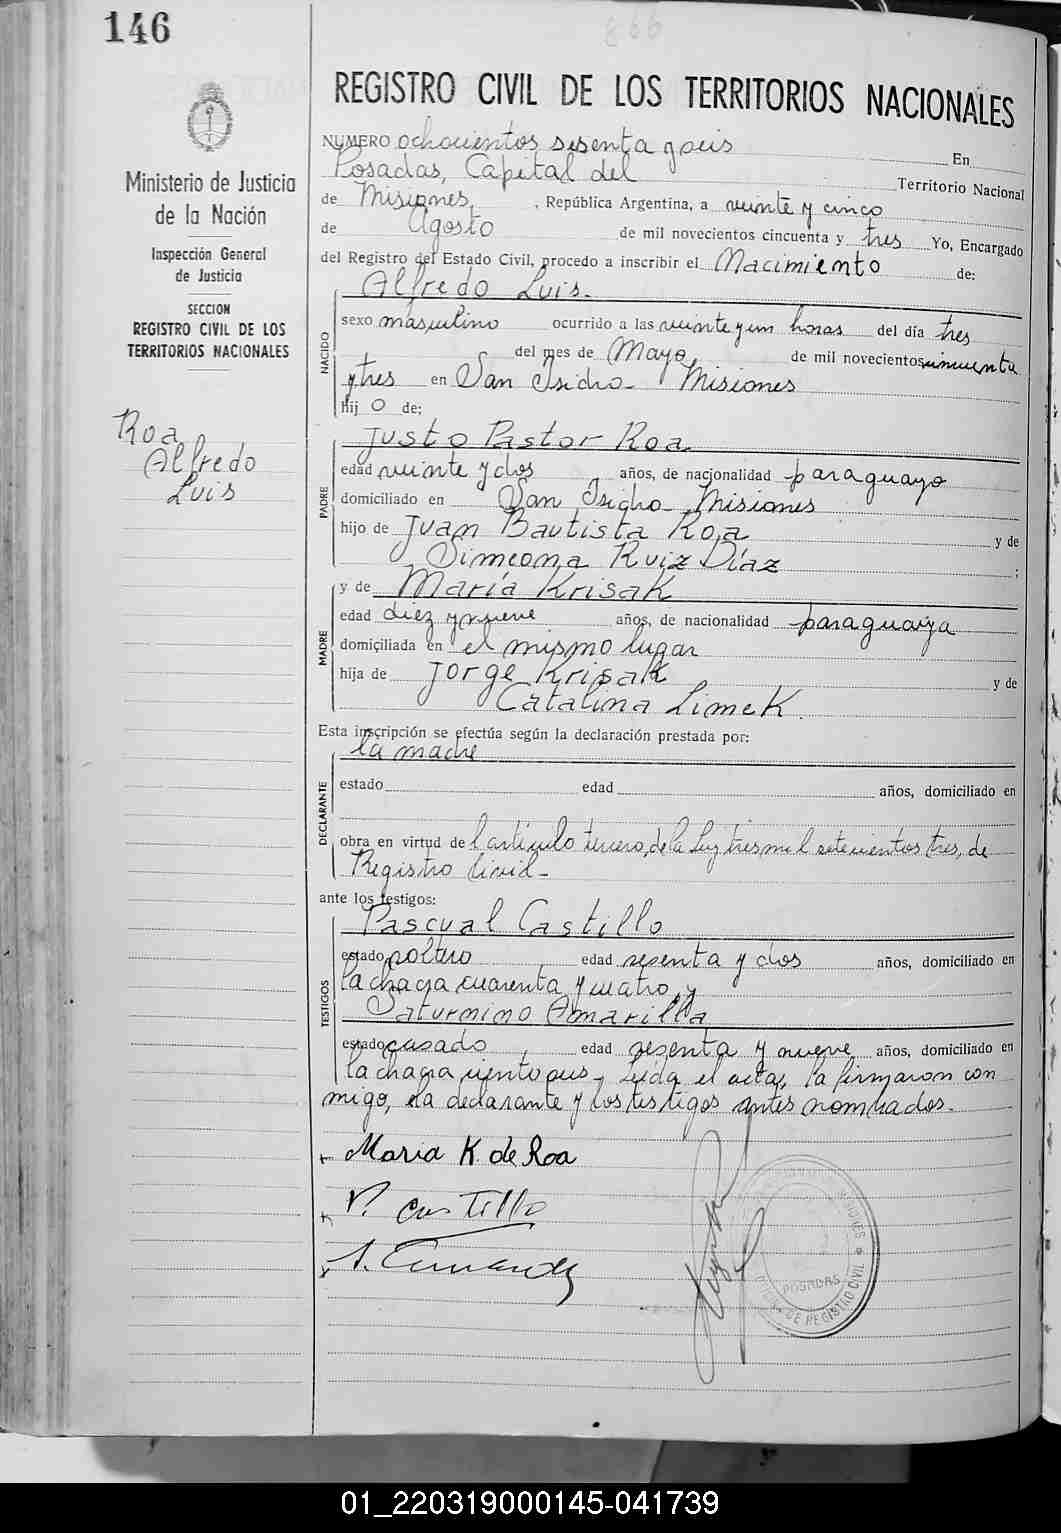 146
866
Ministerio de Justicia
de la Nación
Inspección General
de Justicia
SECCION
REGISTRO CIVIL DE LOS
TERRITORIOS NACIONALES
Roa
Alfredo
Luis
REGISTRO CIVIL DE LOS TERRITORIOS NACIONALES
NUMERO ochocientos sesenta y seis En
Posadas, Capital del Territorio Nacional
de Misiones, República Argentina, a veinte y cinco
de Agosto de mil novecientos cincuenta y tres Yo, Encargado
del Registro del Estado Civil, procedo a inscribir el Nacimiento de:
Alfredo Luis.
NACIDO
sexo masculino ocurrido a las veinte y un horas del día tres
del mes de Mayo de mil novecientos cincuenta
y tres en San Isidro - Misiones
hij o de:
Justo Pastor Roa
PADRE
edad veinte y dos años, de nacionalidad paraguayo
domiciliado en San Isidro - Misiones
hijo de Juan Bautista Roa y de
Simeona Ruiz Díaz ;
y de María Krisak
MADRE
edad diez y nueve años, de nacionalidad paraguaya
domiciliada en el mismo lugar
hija de Jorge Krisak y de
Catalina Limek.
Esta inscripción se efectúa según la declaración prestada por:
la madre
DECLARANTE
estado edad años, domiciliado en
obra en virtud del artículo tercero, de la Ley tres mil setecientos tres, de
Registro Civil -
ante los testigos:
Pascual Castillo
TESTIGOS
estado soltero edad sesenta y dos años, domiciliado en
la chacra cuarenta y cuatro, y
Saturnino Amarilla
estado casado, edad sesenta y nueve años, domiciliado en
la chacra ciento seis - Leída el acta, la firmaron con
migo, la declarante y los testigos antes nombrados.
Maria K. de Roa
P. Castillo
POSADAS
REGISTRO CIVIL
01_220319000145-041739